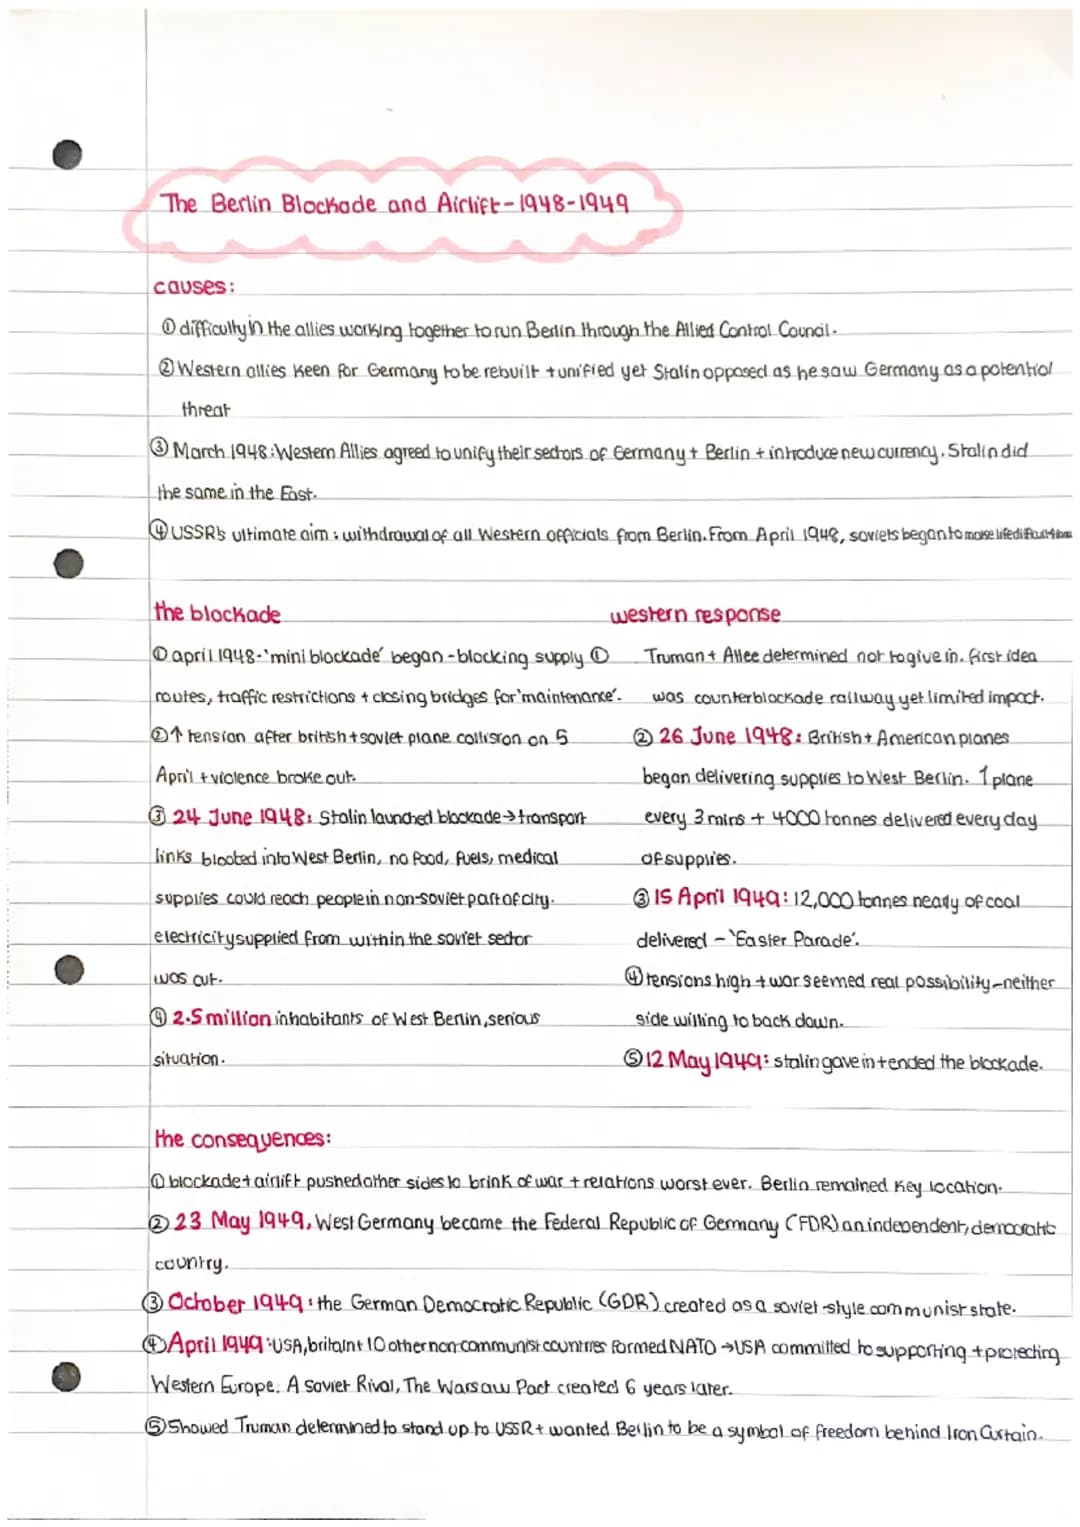 The Berlin Blockade and Airlift-1948-1949
causes:
① difficulty in the allies working together to run Berlin through the Allied Control Council.
② Western allies keen for Germany to be rebuilt + unified yet Stalin opposed as he saw Germany as a potential
threat
③ March 1948: Western Allies agreed to unify their sectors of Germany + Berlin + introduce new currency. Stalin did
the same in the East.
④ USSR's ultimate aim: withdrawal of all Western officials from Berlin. From April 1948, soviets began to make life difficult
the blockade
① april 1948-'mini blockade' began -blocking supply
routes, traffic restrictions + closing bridges for 'maintenance'.
② ↑ tension after british + soviet plane collision on 5
April + violence broke out.
③ 24 June 1948: Stalin launched blockade → transport
links blocked into West Berlin, no food, fuels, medical
supplies could reach people in non-soviet part of city.
electricity supplied from within the soviet sector
was cut.
④ 2.5 million inhabitants of West Berlin, serious
situation.
western response
① Truman + Atlee determined not to give in. first idea
was counterblockade railway yet limited impact.
② 26 June 1948: British + American planes
began delivering supplies to West Berlin. 1 plane
every 3 mins + 4000 tonnes delivered every day
of supplies.
③ 15 April 1949: 12,000 tonnes nearly of coal
delivered - 'Easter Parade'.
④ tensions high + war seemed real possibility-neither
side willing to back down.
⑤ 12 May 1949: stalin gave in + ended the blockade.
the consequences:
① blockade + airlift pushed other sides to brink of war + relations worst ever. Berlin remained key location.
② 23 May 1949, West Germany became the Federal Republic of Germany (FDR) an independent, democratic
country.
③ October 1949: the German Democratic Republic (GDR) created as a soviet-style communist state.
④ April 1949: USA, britain + 10 other non-communist countries formed NATO → USA committed to supporting + protecting
Western Europe. A Soviet Rival, The Warsaw Pact created 6 years later.
⑤ Showed Truman determined to stand up to USSR + wanted Berlin to be a symbol of freedom behind Iron Curtain.